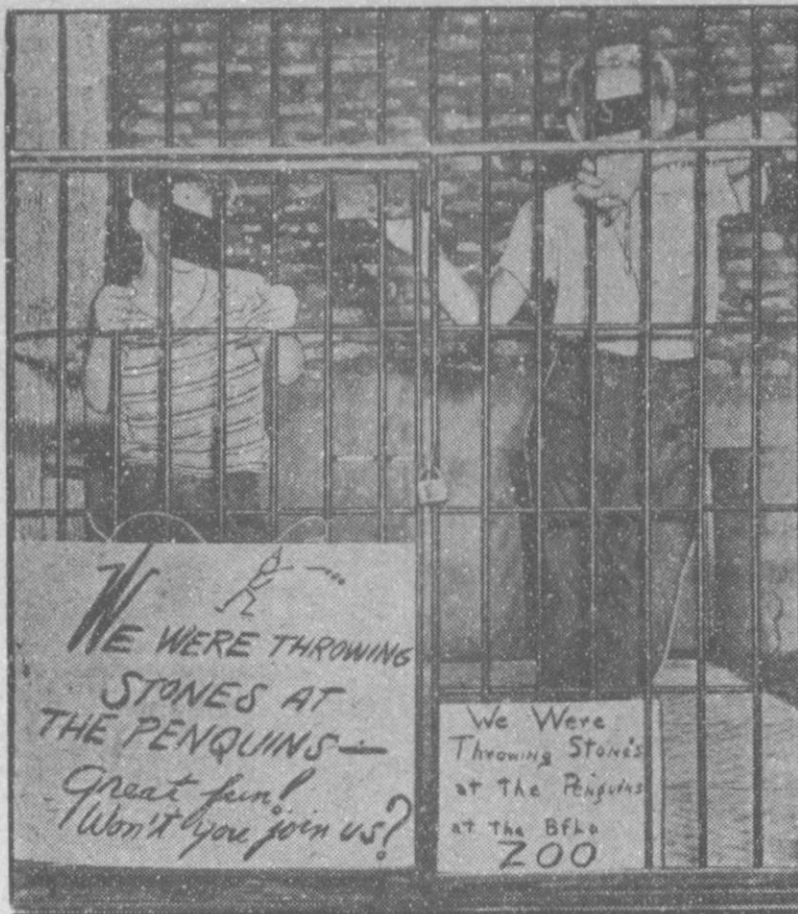 WE WERE THROWING
STONES AT
THE PENQUINS—
Great fun!
Won't you join us?
We Were
Throwing Stones
at The Penguins
at The Bflo
ZOO